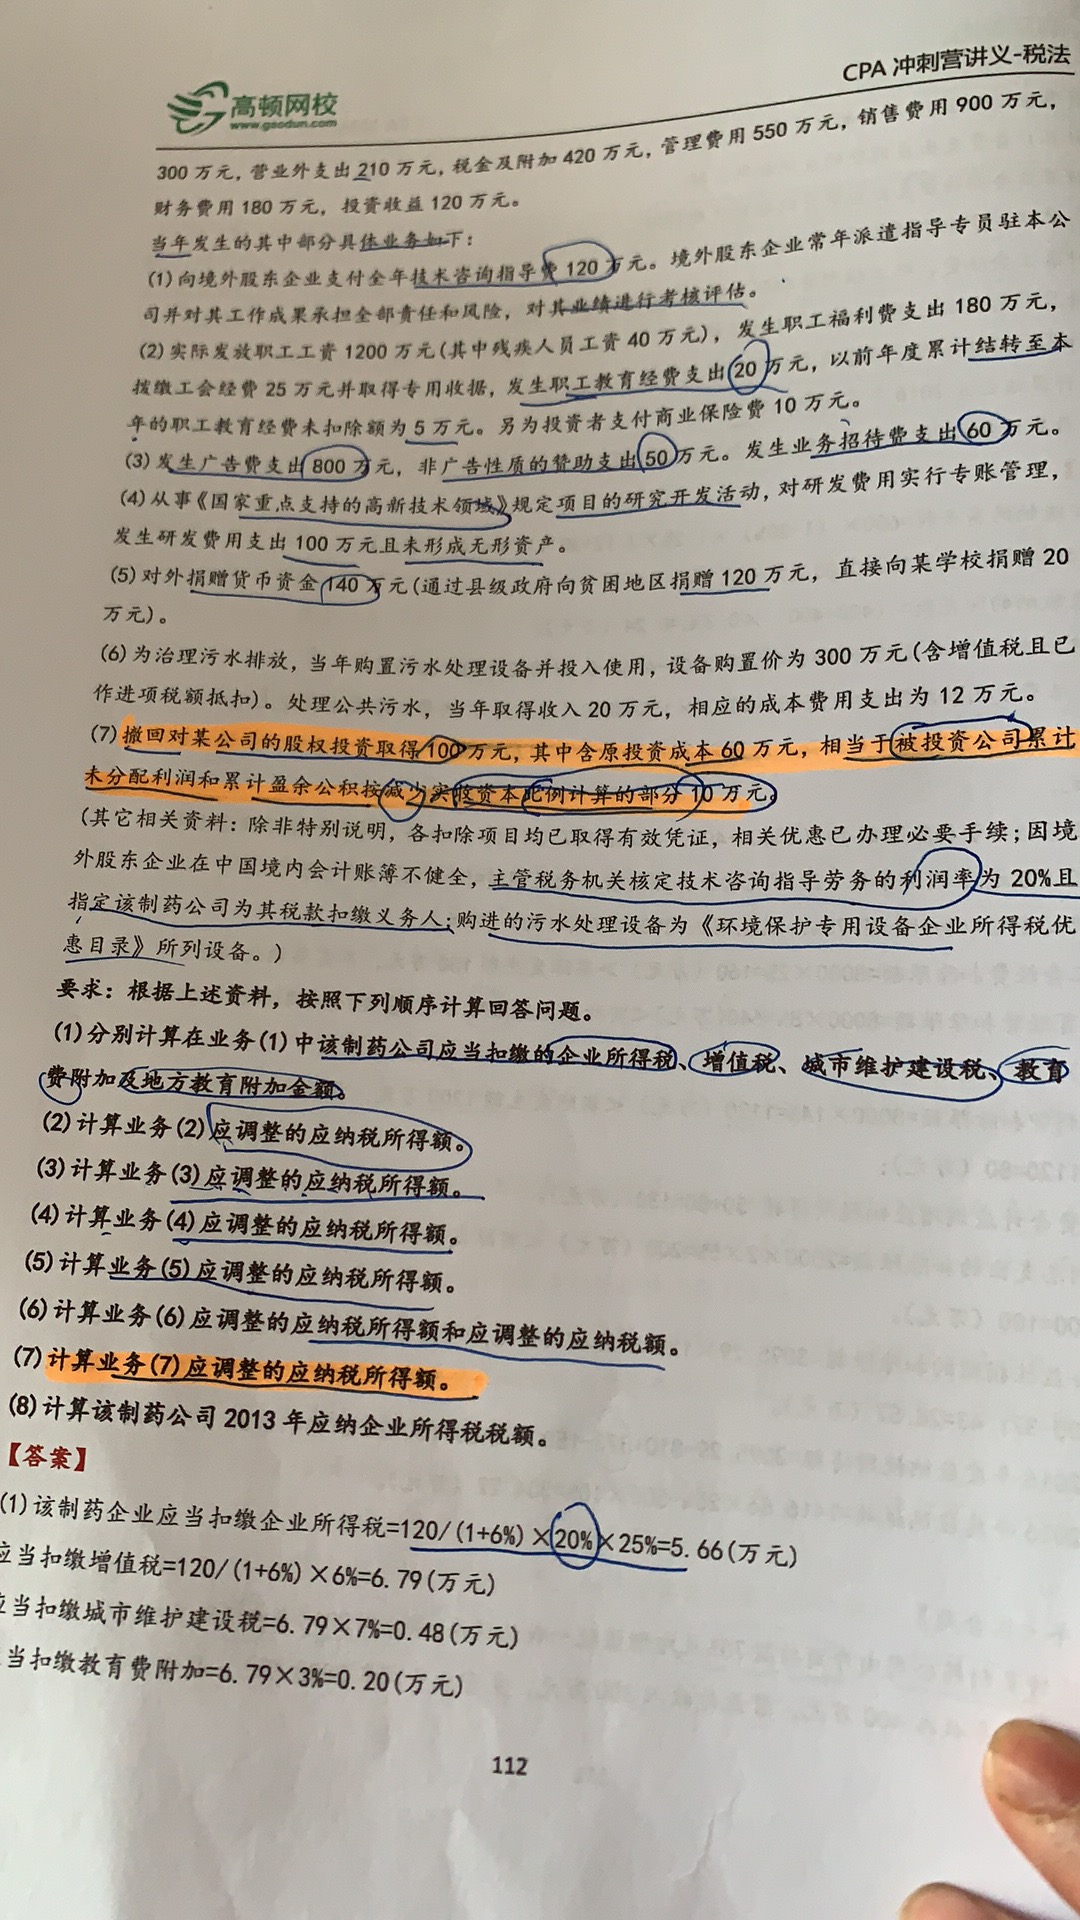 高顿网校
www.gaodun.com
CPA 冲刺营讲义-税法
300 万元，营业外支出 210 万元，税金及附加 420 万元，管理费用 550 万元，销售费用 900 万元，
财务费用 180 万元，投资收益 120 万元。
当年发生的其中部分具体业务如下：
(1)向境外股东企业支付全年技术咨询指导费 120 万元。境外股东企业常年派遣指导专员驻本公
司并对其工作成果承担全部责任和风险，对其业绩进行考核评估。
(2)实际发放职工工资 1200 万元(其中残疾人员工资 40 万元)，发生职工福利费支出 180 万元，
拨缴工会经费 25 万元并取得专用收据，发生职工教育经费支出 20 万元，以前年度累计结转至本
年的职工教育经费未扣除额为 5 万元。另为投资者支付商业保险费 10 万元。
(3)发生广告费支出 800 万元，非广告性质的赞助支出 50 万元。发生业务招待费支出 60 万元。
(4)从事《国家重点支持的高新技术领域》规定项目的研究开发活动，对研发费用实行专账管理，
发生研发费用支出 100 万元且未形成无形资产。
(5)对外捐赠货币资金 140 万元(通过县级政府向贫困地区捐赠 120 万元，直接向某学校捐赠 20
万元)。
(6)为治理污水排放，当年购置污水处理设备并投入使用，设备购置价为 300 万元(含增值税且已
作进项税额抵扣)。处理公共污水，当年取得收入 20 万元，相应的成本费用支出为 12 万元。
(7)撤回对某公司的股权投资取得 100 万元，其中含原投资成本 60 万元，相当于被投资公司累计
未分配利润和累计盈余公积按减少实收资本比例计算的部分 10 万元。
(其它相关资料：除非特别说明，各扣除项目均已取得有效凭证，相关优惠已办理必要手续；因境
外股东企业在中国境内会计账簿不健全，主管税务机关核定技术咨询指导劳务的利润率为 20%且
指定该制药公司为其税款扣缴义务人；购进的污水处理设备为《环境保护专用设备企业所得税优
惠目录》所列设备。)
要求：根据上述资料，按照下列顺序计算回答问题。
(1)分别计算在业务(1)中该制药公司应当扣缴的企业所得税、增值税、城市维护建设税、教育
费附加及地方教育附加金额。
(2)计算业务(2)应调整的应纳税所得额。
(3)计算业务(3)应调整的应纳税所得额。
(4)计算业务(4)应调整的应纳税所得额。
(5)计算业务(5)应调整的应纳税所得额。
(6)计算业务(6)应调整的应纳税所得额和应调整的应纳税额。
(7)计算业务(7)应调整的应纳税所得额。
(8)计算该制药公司 2013 年应纳企业所得税税额。
【答案】
(1)该制药企业应当扣缴企业所得税=120/(1+6%)×20%×25%=5.66(万元)
应当扣缴增值税=120/(1+6%)×6%=6.79(万元)
应当扣缴城市维护建设税=6.79×7%=0.48(万元)
当扣缴教育费附加=6.79×3%=0.20(万元)
112